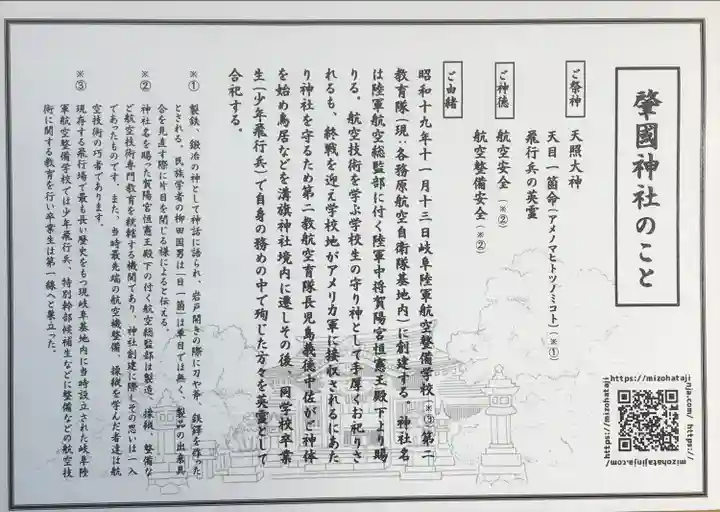 肇國神社のこと
ご祭神
天照大神
天目一箇命(アメノマヒトツノミコト)(※①)
飛行兵の英霊
ご神徳
航空安全(※②)
航空整備安全(※②)
ご由緒
昭和十九年十一月十三日岐阜陸軍航空整備学校(※③)第二
教育隊(現:各務原航空自衛隊基地内)に創建する。神社名
は陸軍航空総監部に付く陸軍中将賀陽宮恒憲王殿下より賜
りる。航空技術を学ぶ学校生の守り神として手厚くお祀りさ
れるも、終戦を迎え学校地がアメリカ軍に接収されるにあた
り神社を守るため第二教航空育隊長児島義徳中佐がご神体
を始め鳥居などを溝旗神社境内に遷しその後、同学校卒業
生(少年飛行兵)で自身の務めの中で殉じた方々を英霊として
合祀する。
※① 製鉄、鍛冶の神として神話に語られ、岩戸開きの際に刀や斧、鉄鐸を作った
とされる。民族学者の柳田国男は「目一箇」は単目では無く、製品の出来具
合を見直す際に片目を閉じる様によると伝える。
※② 神社名を賜った賀陽宮恒憲王殿下の付く航空総監部は製造、操縦、整備な
ど航空技術専門教育を統轄する機関であり、神社創建に際しその思いは一入
であったものです。また、当時最先端の航空機整備、操縦を学んだ者達は航
空技術の巧者であります。
※③ 現存する飛行場で最も長い歴史をもつ現岐阜基地内に当時設立された岐阜陸
軍航空整備学校では少年飛行兵、特別幹部候補生などに整備などの航空技
術に関する教育を行い卒業生は第一線へと巣立った。
https://mizohatajinja.com/
https://mizohatajinja.com/
https://mizohatajinja.com/